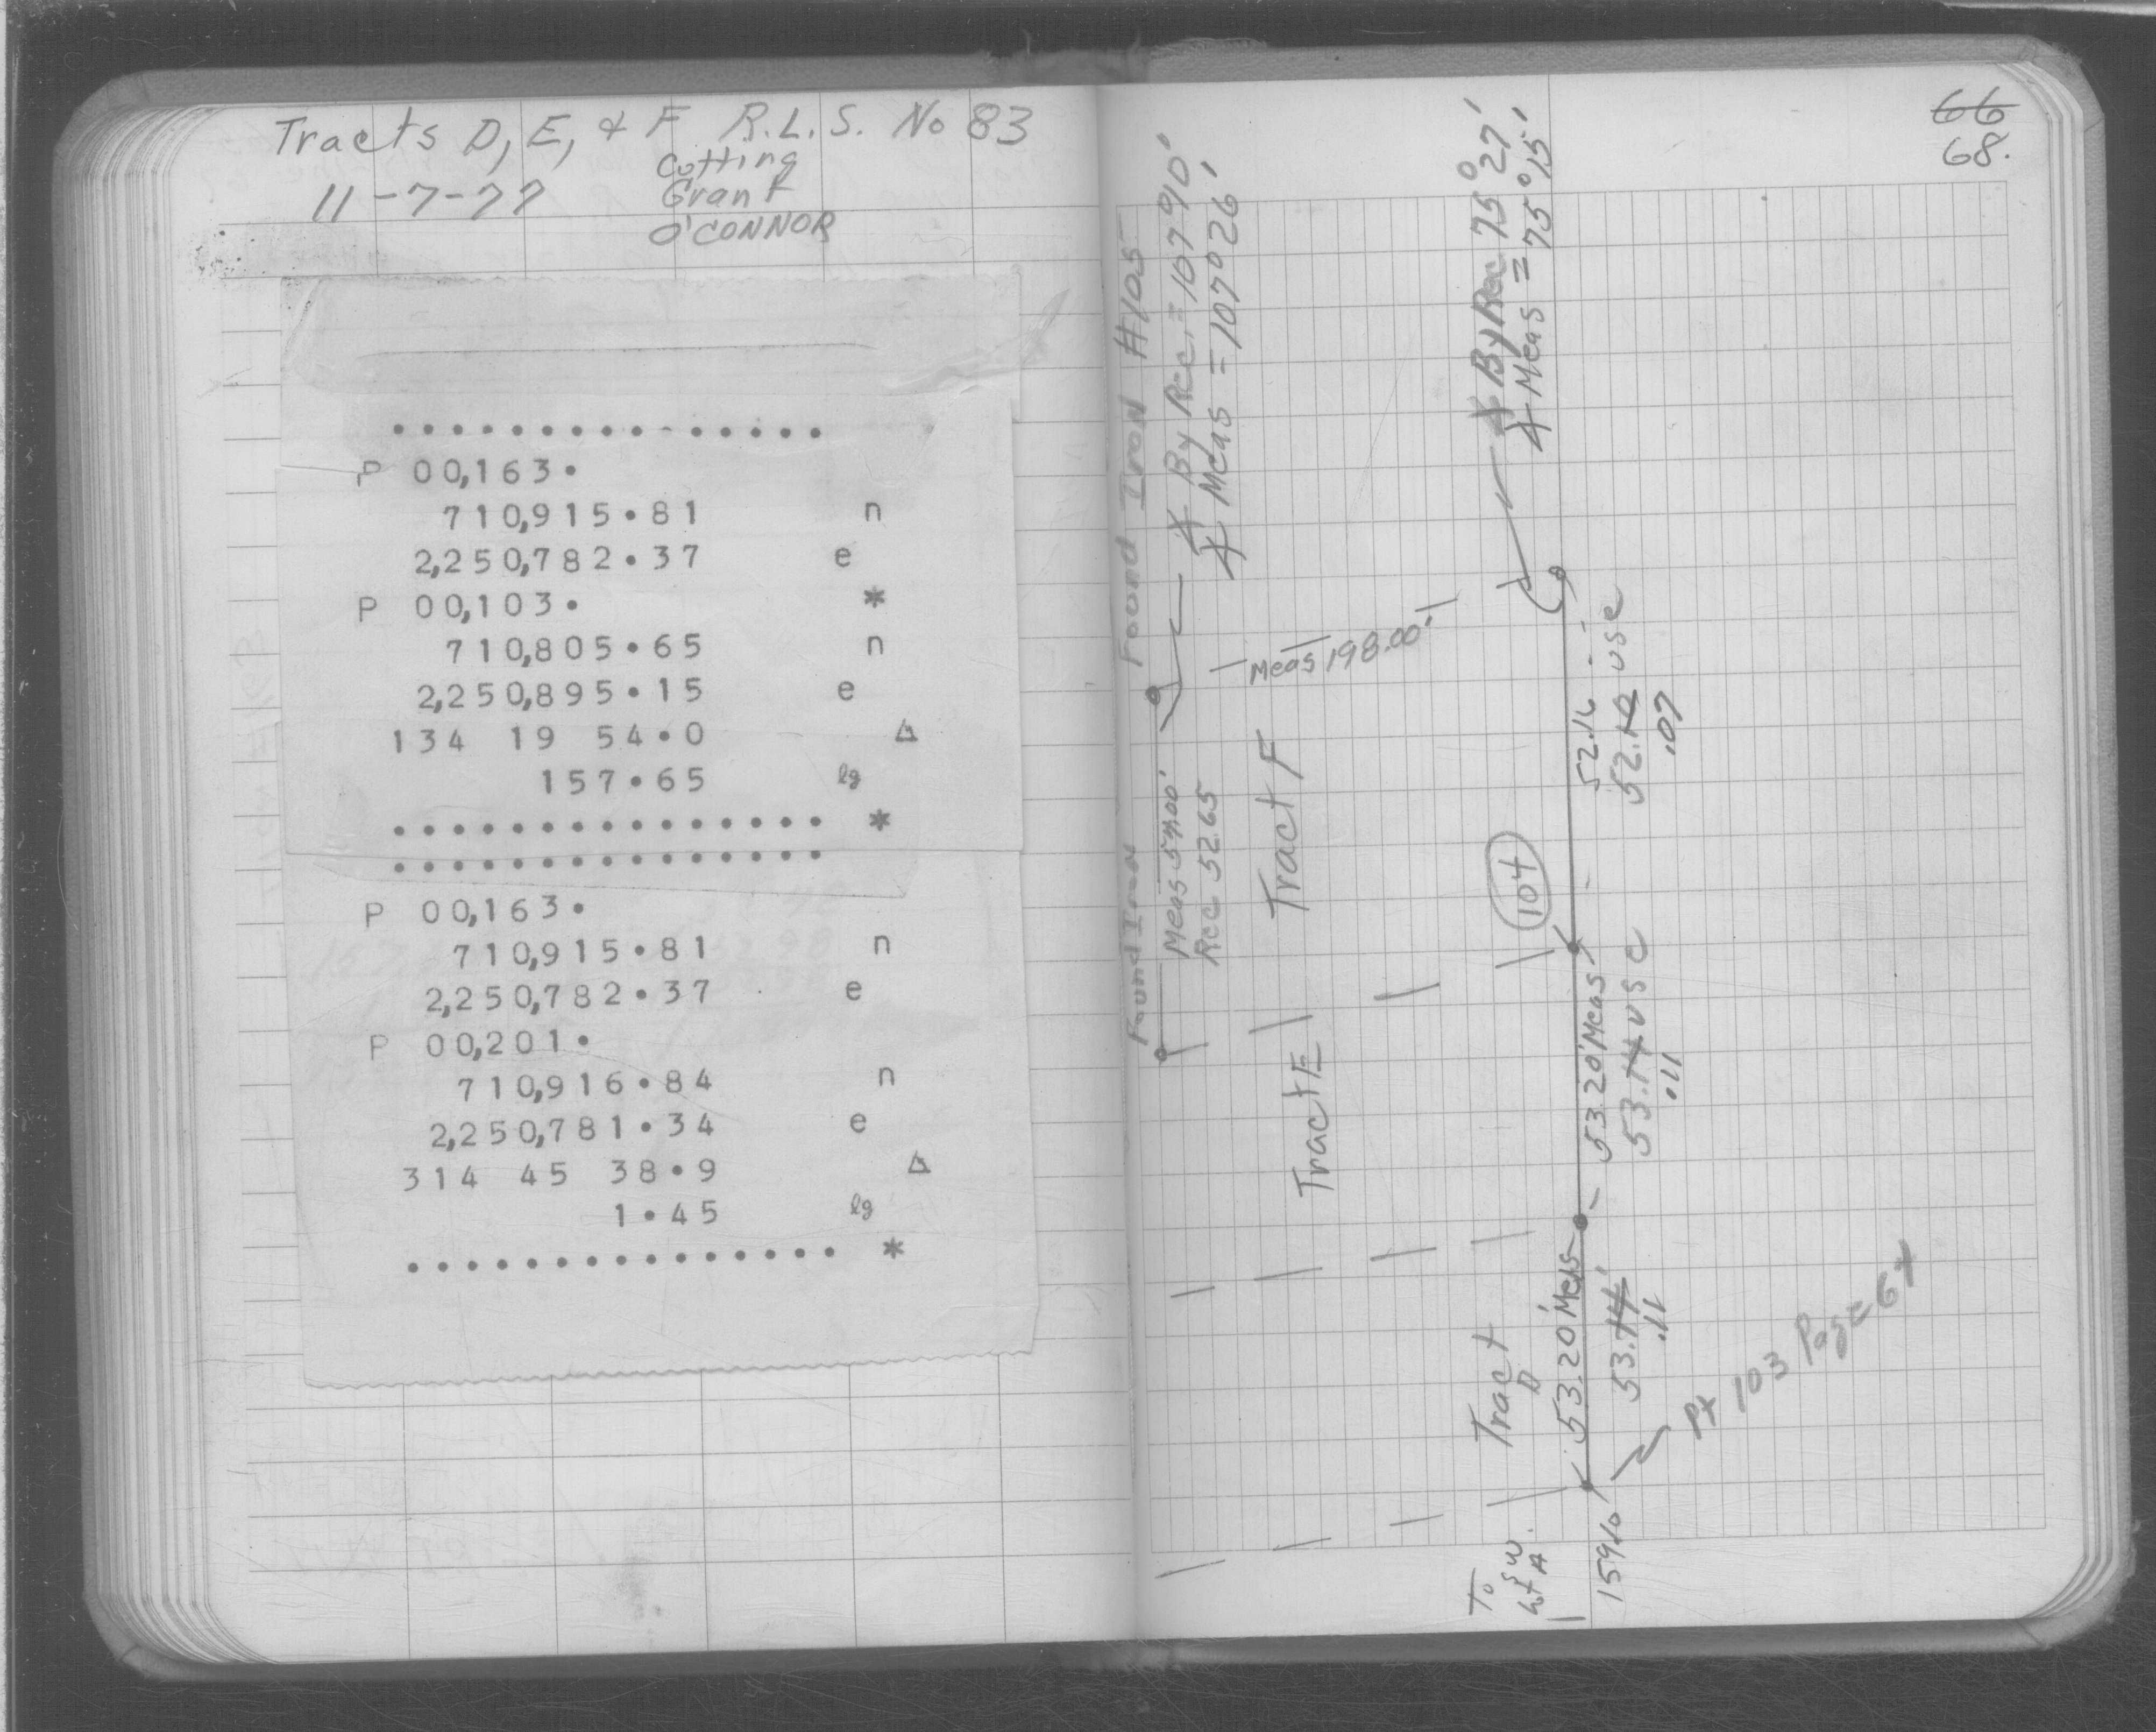 Tracts D, E, & F R.L.S. No 83
Cutting
11-7-77 Grant
O'CONNOR
P 00,163.
710,915.81 n
2,250,782.37 e
P 00,103. *
710,805.65 n
2,250,895.15 e
134 19 54.0 Δ
157.65 lg
*
P 00,163.
710,915.81 n
2,250,782.37 e
P 00,201.
710,916.84 n
2,250,781.34 e
314 45 38.9 Δ
1.45 lg
*
66
68.
Found Iron
Found Iron #105
∡ By Rec. = 107°
∡ Meas = 107°26'
Meas 54.00'
Rec 52.65
Meas 198.00'
Tract F
Tract E
Tract
D
∡ By Rec 75°27'
∡ Meas = 75°15'
104
52.16
52.10 use
.07
53.20' Meas
53.14 use
.11
53.20' Meas
53.14'
.11
Pt 103 Page 64
To
SW
Lot A